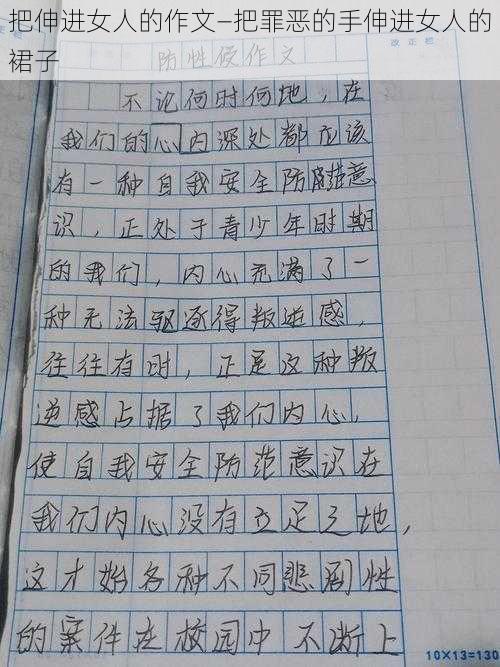 把伸进女人的作文—把罪恶的手伸进女人的
裙子
改正栏
防性侵作文
不论何时何地，在
我们的心内深处都应该
有一种自我安全防范意
识，正处于青少年时期
的我们，内心充满了一
种无法驱逐得叛逆感，
往往有时，正是这种叛
逆感占据了我们内心，
使自我安全防范意识在
我们内心没有立足之地，
这才始各种不同悲剧性
的案件在校园中不断上
10×13=130